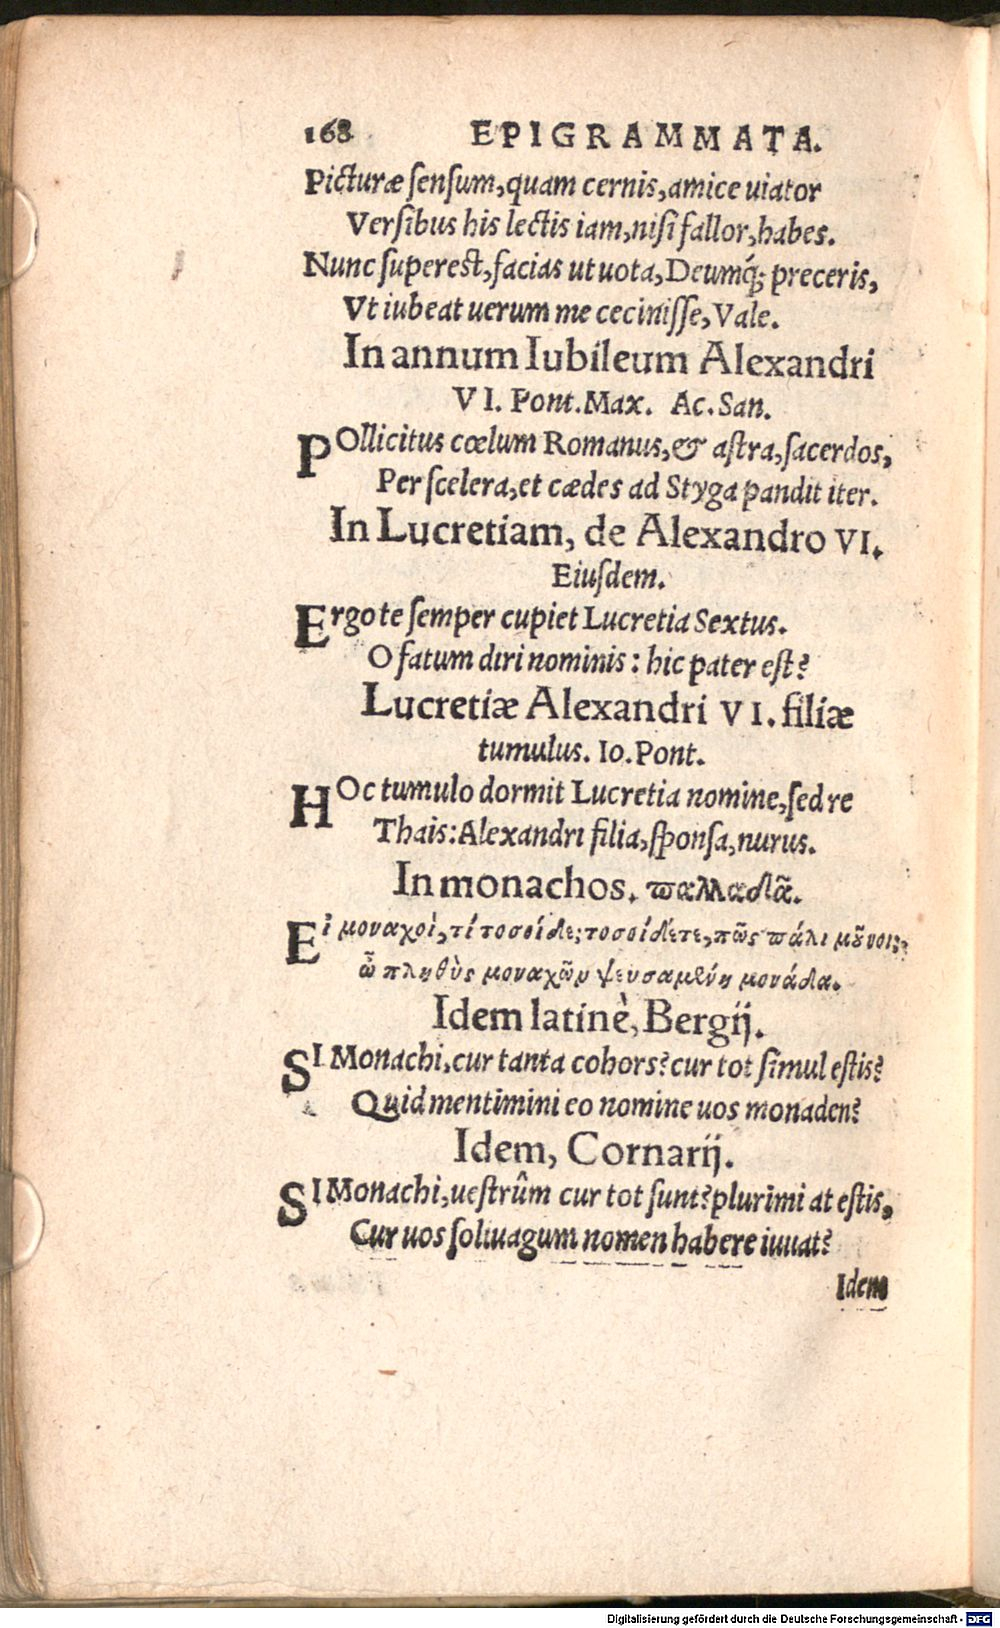 168 EPIGRAMMATA.
Picturæ sensum, quam cernis, amice uiator
Versibus his lectis iam, nisi fallor, habes.
Nunc superest, facias ut uota, Deumq́; preceris,
Vt iubeat uerum me cecinisse, Vale.
In annum Iubileum Alexandri
VI. Pont. Max. Ac. San.
POllicitus cœlum Romanus, & astra, sacerdos,
Per scelera, et cædes ad Styga pandit iter.
In Lucretiam, de Alexandro VI.
Eiusdem.
Ergo te semper cupiet Lucretia Sextus.
O fatum diri nominis: hic pater est?
Lucretiæ Alexandri VI. filiæ
tumulus. Io. Pont.
HOc tumulo dormit Lucretia nomine, sed re
Thais: Alexandri filia, sponsa, nurus.
In monachos. παλλαδᾶ.
Εἰ μοναχοὶ, τί τοσοίδε; τοσοίδετε, πῶς πάλι μοῦνοι;
ὦ πληθὺς μοναχῶν ψευσαμένη μονάδα.
Idem latinè, Bergij.
SI Monachi, cur tanta cohors? cur tot simul estis?
Quid mentimini eo nomine uos monaden?
Idem, Cornarij.
SI Monachi, uestrûm cur tot sunt? plurimi at estis,
Cur uos soliuagum nomen habere iuuat?
Idem
Digitalisierung gefördert durch die Deutsche Forschungsgemeinschaft - DFG